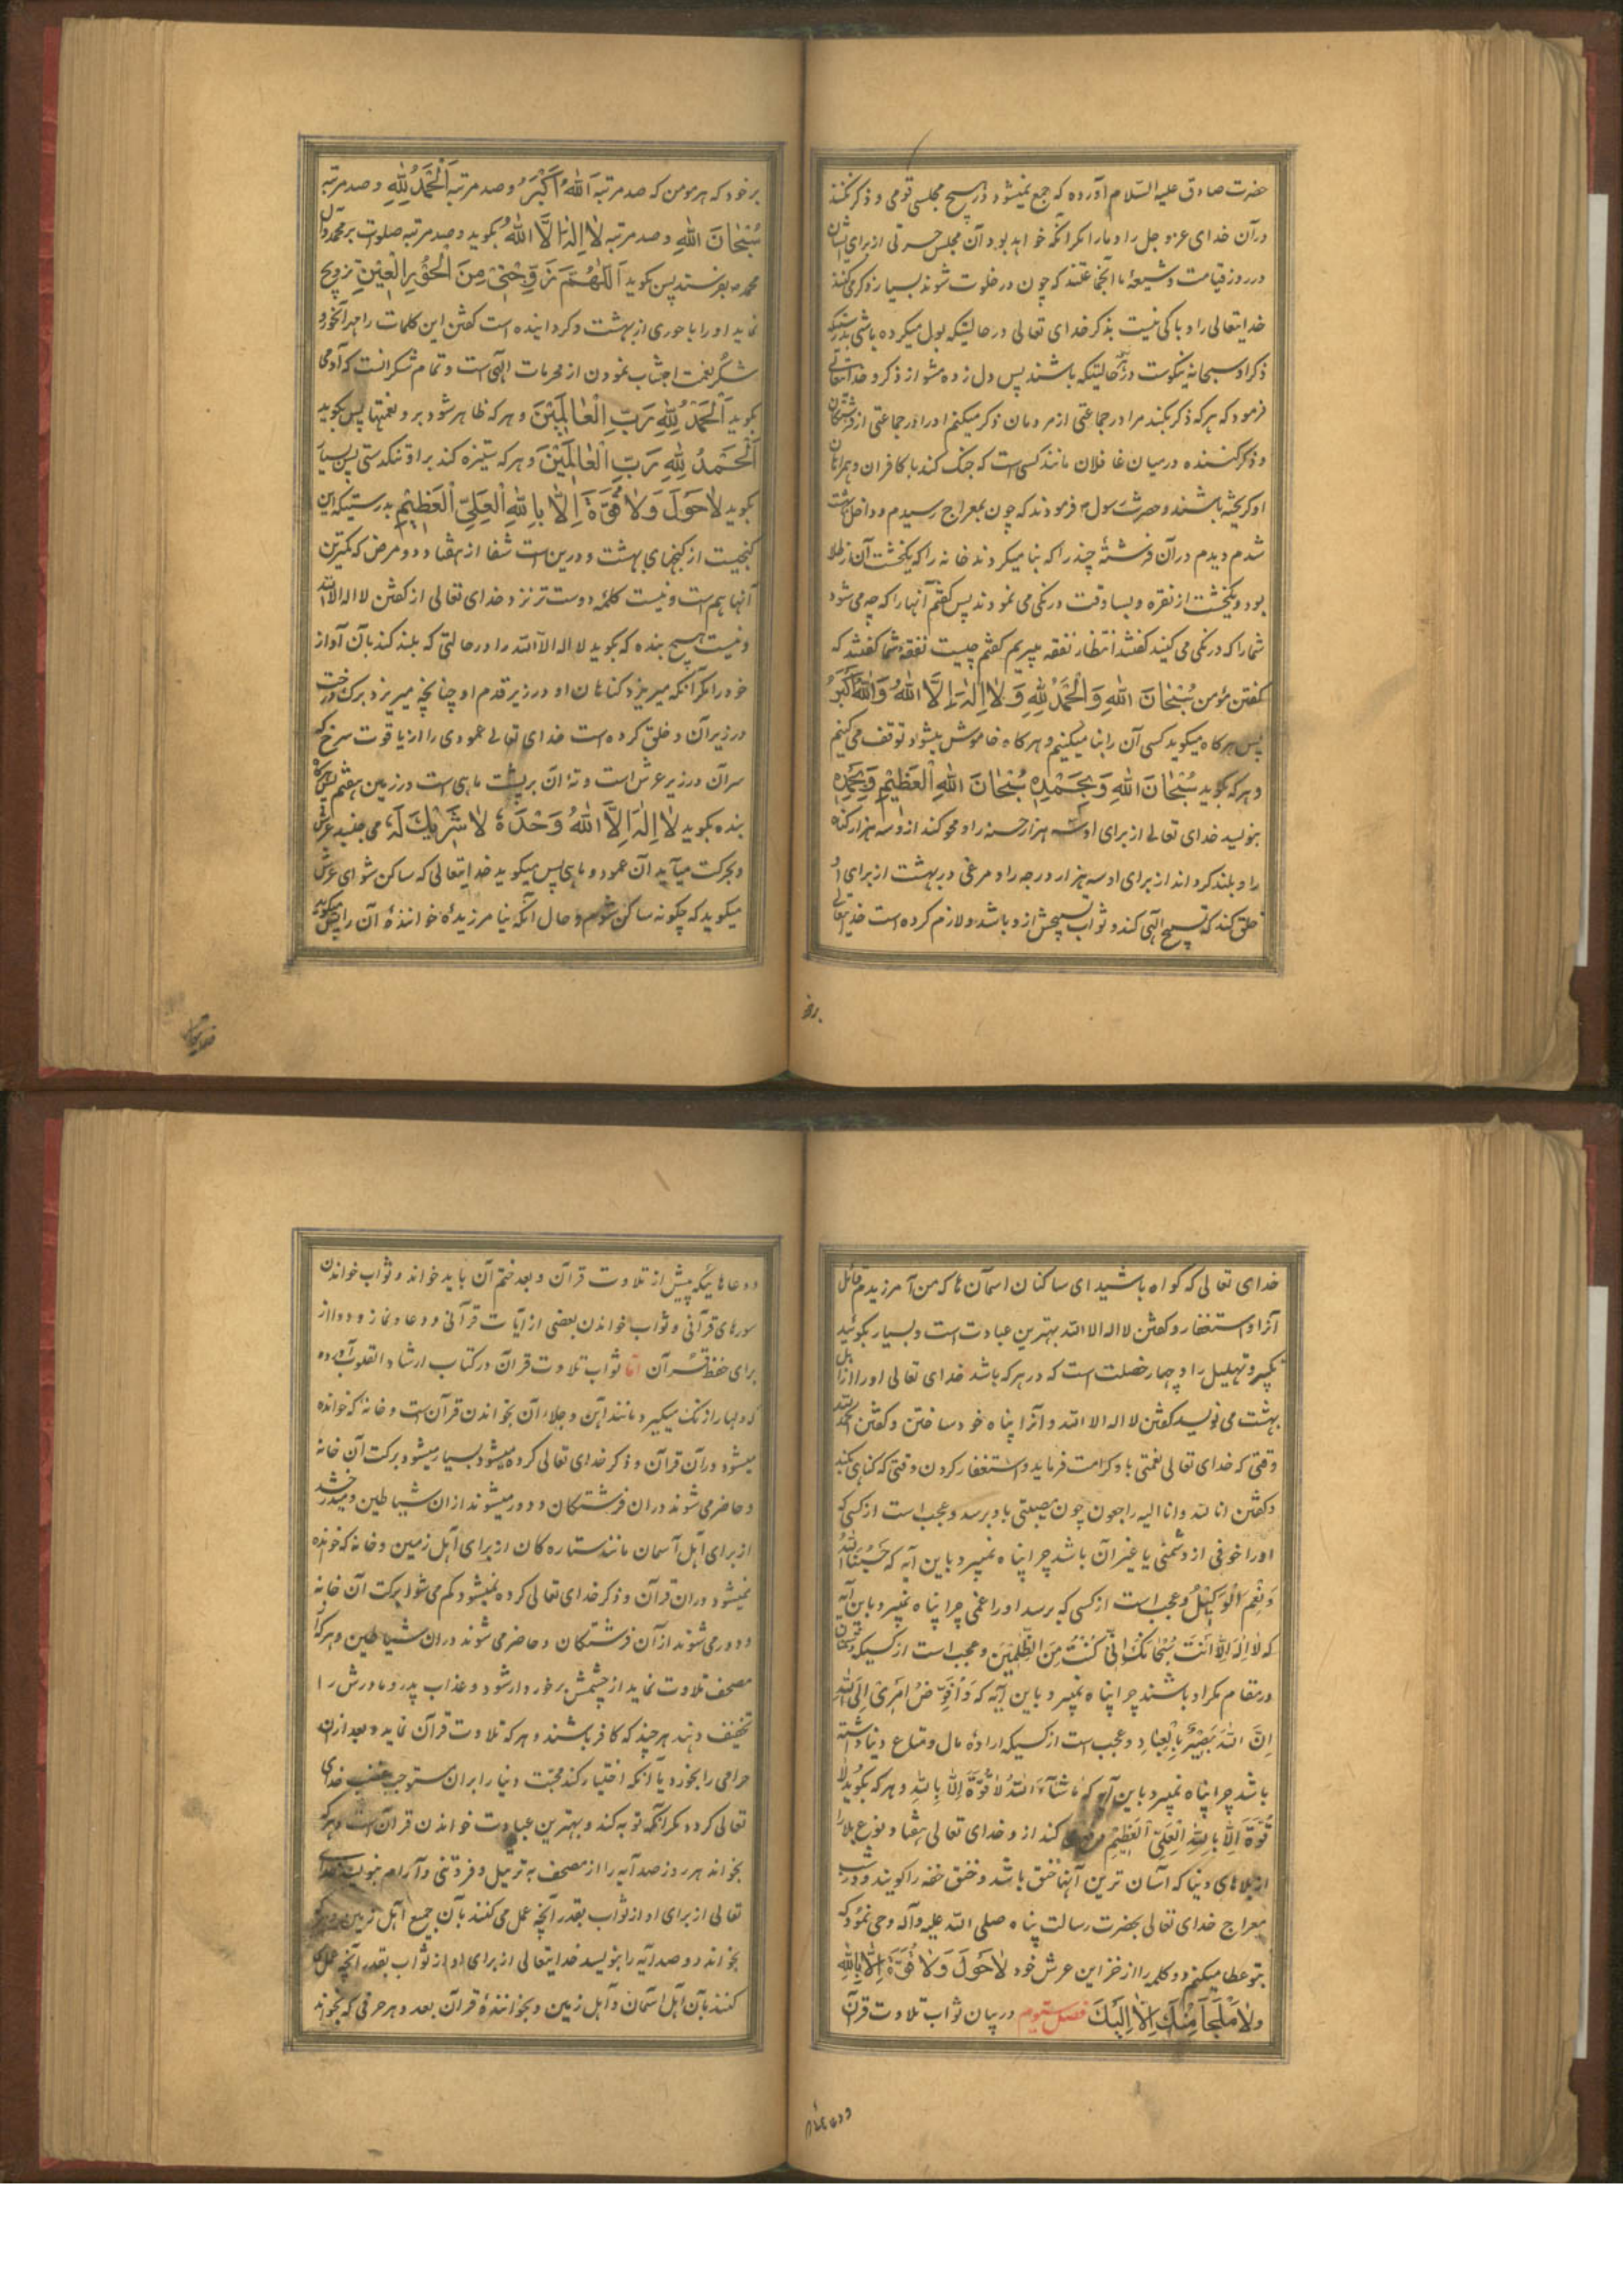 حضرت صادق علیه السّلام آورده که جمع نمیشود در هیچ مجلسی قومی و ذکر نکنند
در آن خدای عزوجل را و ما را مکر آنکه خواهد بود آن مجلس حسرتی از برای ایشان
در روز قیامت و شیعهٔ ما آنجماعتند که چون در خلوت شوند بسیار ذکر می کنند
خدایتعالی را و باکی نیست بذکر خدای تعالی در حالتیکه بول میکرده باشی بدرستیکه
ذکر او سبحانه نیکوست در هر حالتیکه باشند پس دل زده مشو از ذکر و خدایتعالی
فرمود که هر که ذکر بکند مرا در جماعتی از مردمان ذکر میکنم او را در جماعتی از فرشتکان
و ذکر کننده در میان غافلان مانند کسی است که جنک کند با کافران و همراهان
او کریخته باشند و حضرت رسول فرمودند که چون بمعراج رسیدم و داخل بهشت
شدم دیدم در آن فرشتهٔ چند را که بنا میکردند خانه را که یکخشت آن از طلا
بود و یکخشت از نقره و بسا وقت درنکی می نمودند پس کفتم آنها را که چه می شود
شما را که درنکی می کنید کفتند انتظار نفقه میبریم کفتم چیست نفقهٔ شما کفتند که
کفتن مؤمن سُبْحانَ اللهِ وَالْحَمْدُ لِلّهِ وَلا اِلهَ اِلَّا اللهُ وَاللهُ اَکْبَرُ
پس هر کاه میکوید کسی آن را بنا میکنیم و هر کاه خاموش میشود توقف می کنیم
و هر که بکوید سُبْحانَ اللهِ وَبِحَمْدِهِ سُبْحانَ اللهِ الْعَظیْمِ وَبِحَمْدِهِ
بنویسد خدای تعالی از برای او سه هزار حسنه را و محو کند از و سه هزار کناه
را و بلند کرداند از برای او سه هزار درجه را و مرغی در بهشت از برای او
خلق کند که تسبیح الهی کند و ثواب تسبیحش از و باشد و لازم کرده است خدایتعالی
برخود
برخود که هر مومن که صد مرتبه اَللهُ اَکْبَرُ و صد مرتبه اَلْحَمْدُ لِلّهِ و صد مرتبه
سُبْحانَ اللهِ و صد مرتبه لا اِلهَ اِلَّا اللهُ بکوید و صد مرتبه صلوات بر محمد و آل
محمد بفرستد پس بکوید اَللّهُمَّ زَوِّجْنی مِنَ الْحُوْرِ الْعِیْنِ تزویج
نماید او را با حوری از بهشت و کردانیده است کفتن این کلمات را مهر آنحور و
شکر نعمت اجتناب نمودن از محرمات الهی است و تمام شکر آنست که آدمی
بکوید اَلْحَمْدُ لِلّهِ رَبِّ الْعالَمِیْنَ و هر که ظاهر شود برو نعمتها پس بکوید
اَلْحَمْدُ لِلّهِ رَبِّ الْعالَمِیْنَ و هر که ستیزه کند بر او تنکدستی پس بسیار
بکوید لاحَوْلَ وَلا قُوَّةَ اِلّا بِاللهِ الْعَلِیِّ الْعَظِیْمِ بدرستیکه این
کنجیست از کنجهای بهشت و درین است شفا از هفتاد و دو مرض که کمترین
آنها هم است و نیست کلمهٔ دوست تر نزد خدای تعالی از کفتن لا اله الا الله
و نیست هیچ بنده که بکوید لا اله الا الله را در حالتی که بلند کند بآن آواز
خود را مکر آنکه میریزد کناهان او در زیر قدم او چنانچه میریزد برک درخت
در زیر آن و خلق کرده است خدای تعالی عمودی را از یاقوت سرخ که
سر آن در زیر عرش است و ته آن بر پشت ماهی است در زمین هفتم پس هرکاه
بنده بکوید لا اِلهَ اِلَّا اللهُ وَحْدَهُ لا شَرِیْکَ لَهُ می جنبد عرش
و بحرکت میآید آن عمود و ماهی پس میکوید خدایتعالی که ساکن شو ای عرش
میکوید که چکونه ساکن شوم و حال آنکه نیامرزیدهٔ خوانندهٔ آن را پس میکوید
خدایتعالی
خدای تعالی که کواه باشید ای ساکنان اسمان ها که من آمرزیدم قائل
آنرا و استغفار و کفتن لا اله الا الله بهترین عبادت است و بسیار بکوئید
تکبیر و تهلیل را و چهار خصلت است که در هر که باشد خدای تعالی او را از اهل
بهشت می نویسد کفتن لا اله الا الله و آنرا پناه خود ساختن و کفتن الحمد لله
وقتی که خدای تعالی نعمتی باو کرامت فرماید و استغفار کردن وقتی که کناهی بکند
و کفتن انا لله و انا الیه راجعون چون مصیبتی باو برسد و عجب است از کسی که
او را خوفی از دشمنی یا غیر آن باشد چرا پناه نمیبرد باین آیه که حَسْبُنَا اللهُ
وَ نِعْمَ الْوَکِیْلُ و عجب است از کسی که برسد او را غمی چرا پناه نمیبرد باین آیه
که لا اِلهَ اِلّا اَنْتَ سُبْحانَکَ اِنِّی کُنْتُ مِنَ الظّلِمِیْنَ و عجب است از کسیکه دشمنان
در مقام مکر او باشند چرا پناه نمیبرد باین آیه که وَ اُفَوِّضُ اَمْرِیْ اِلَی اللهِ
اِنَّ اللهَ بَصِیْرٌ بِالْعِبادِ و عجب است از کسیکه ارادهٔ مال و متاع دنیا داشته
باشد چرا پناه نمیبرد باین آیه که ما شآءَ اللهُ لا قُوَّةَ اِلّا بِاللهِ و هر که بکوید لا
قُوَّةَ اِلّا بِاللهِ الْعَلِیِّ الْعَظِیْمِ کند از و خدای تعالی هفتاد نوع بلا را
از بلاهای دنیا که آسان ترین آنها خنق باشد و خنق خفه را کویند و در شب
معراج خدای تعالی بحضرت رسالت پناه صلی الله علیه و آله وحی نمود که
بتو عطا میکنم دو کلمه را از خزاین عرش خود لاحَوْلَ وَلا قُوَّةَ اِلّا بِاللهِ
وَلا مَلْجَأَ مِنْکَ اِلّا اِلَیْکَ فصل سیوم در بیان ثواب تلاوت قرآن
و دعاها
و دعاهائیکه پیش از تلاوت قرآن و بعد ختم آن باید خواند و ثواب خواندن
سورهای قرآنی و ثواب خواندن بعضی از آیات قرآنی و دعا و نماز و دوا از
برای حفظ قرآن اما ثواب تلاوت قرآن در کتاب ارشاد القلوب آورده
که دلها را زنک میکیرد مانند آهن و جلاء آن بخواندن قرآن است و خانهٔ که خوانده
میشود در آن قرآن و ذکر خدای تعالی کرده میشود بسیار میشود برکت آن خانه
و حاضر می شوند در ان فرشتکان و دور میشوند از ان شیاطین و میدرخشد
از برای اهل آسمان مانند ستاره کان از برای اهل زمین و خانهٔ که خوانده
نمیشود در ان قرآن و ذکر خدای تعالی کرده نمیشود کم می شود برکت آن خانه
و دور می شوند از آن فرشتکان و حاضر می شوند در ان شیاطین و هر که از
مصحف تلاوت نماید از چشمش برخوردار شود و عذاب پدر و مادرش را
تخفیف دهند هر چند که کافر باشند و هر که تلاوت قرآن نماید و بعد از ان
حرامی را بخورد یا آنکه اختیار کند محبّت دنیا را بر ان مستوجب غضب خدای
تعالی کردد مکر آنکه توبه کند و بهترین عبادت خواندن قرآن است و هر که
بخواند هر روز صد آیه را از مصحف به ترتیل و فروتنی و آرام بنویسد خدای
تعالی از برای او از ثواب بقدر آنچه عمل می کنند بآن جمیع اهل زمین و هر که
بخواند دو صد آیه را بنویسد خدایتعالی از برای او از ثواب بقدر آنچه عمل می
کنند بآن اهل اسمان و اهل زمین و بخوانندهٔ قرآن بعد و هر حرفی که بخواند